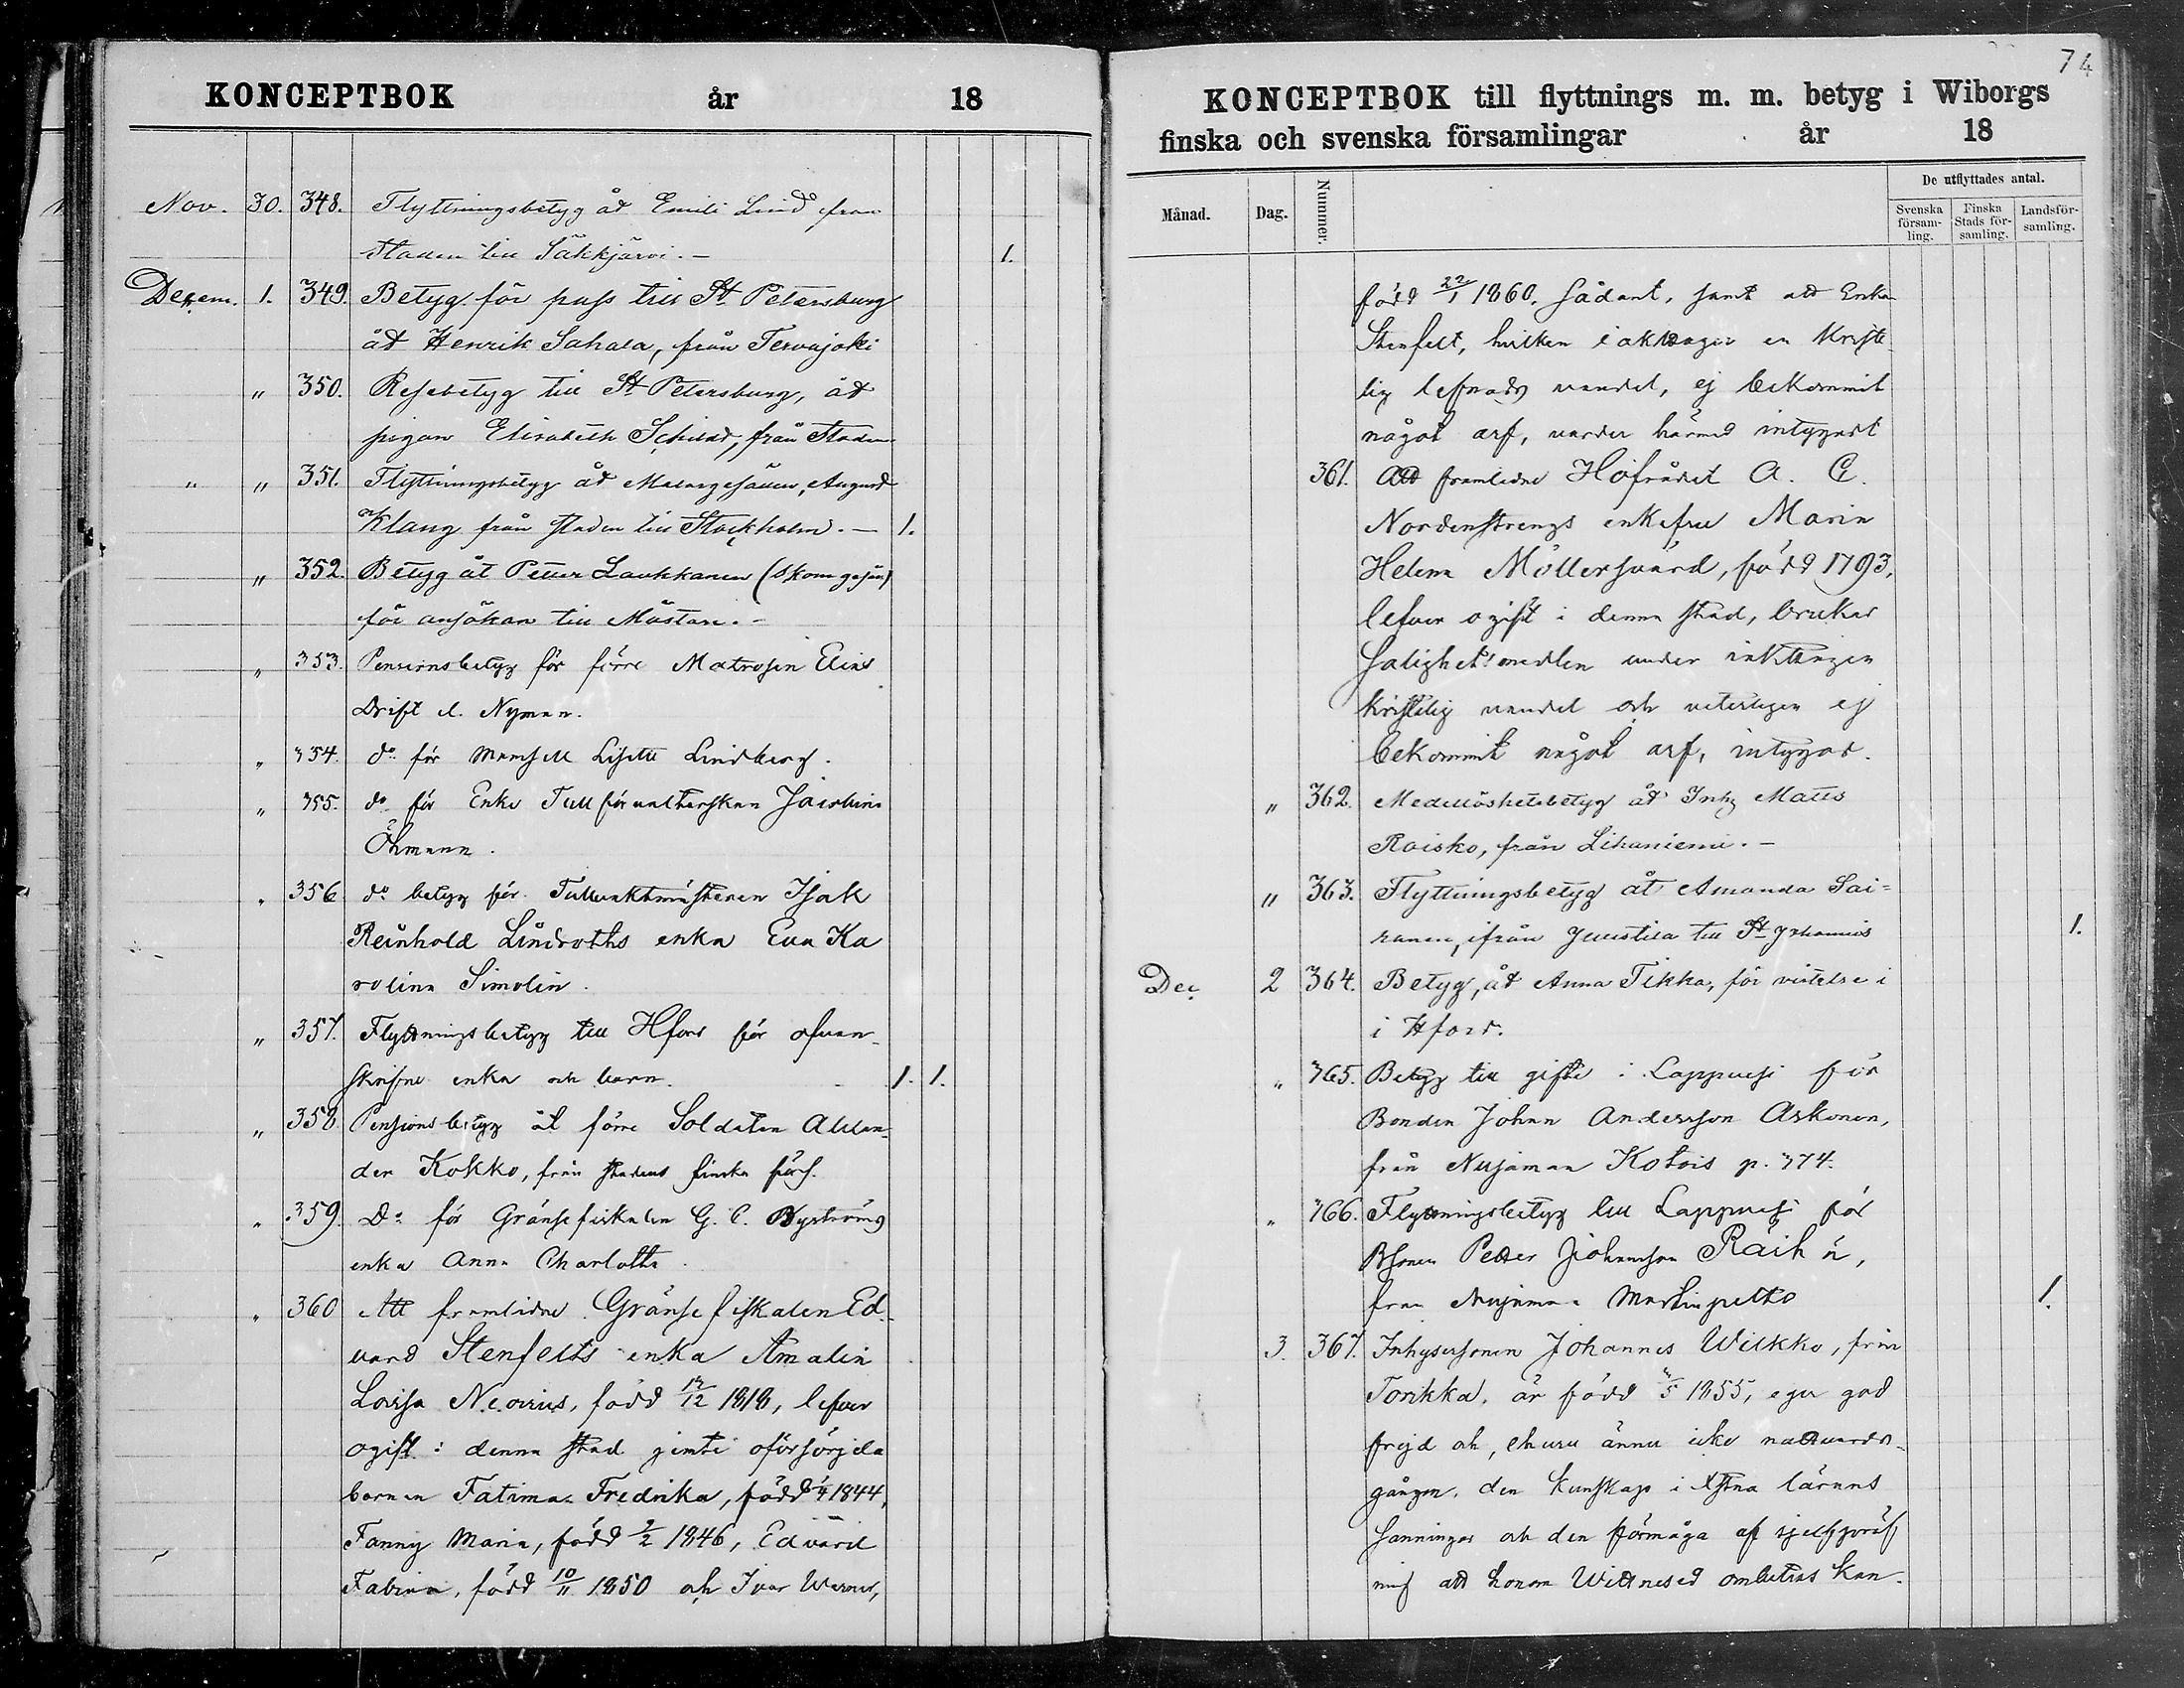 KONCEPTBOK år 18
Nov. 30. 348. Flyttningsbetyg åt Emili Lind från
staden till Säkkjärvi. — 1.
Decem. 1. 349. Betyg för pass till St Petersburg
åt Henrik Sahala, från Tervajoki
" 350. Resebetyg till St Petersburg, åt
pigan Elisabeth Schildt, från Staden
" " 351. Flyttningsbetyg åt Målaregesällen, August
Klang från staden till Stockholm. — 1.
" 352. Betyg åt Petter Laukkanen (skom gesäll)
för ansökan till Mästare. -
" 353. Pensionsbetyg för förre Matrosen Elias
Drift el. Nyman.
" 354. do för Mamsell Lisette Lindberg.
" 355. do för Enke Tullförvalterskan
Öhmann.
" 356 do betyg för Tullvaktmästaren Isak
Reinhold Lindroths enka Eva Ka
rolina Simolin.
" 357. Flyttningsbetyg till Hfors för ofvan-
skrifne enka och barn. 1. 1.
" 358. Pensionsbetyg åt förre Soldaten Alexan-
der Kokko, från stadens finska förs.
" 359. Do för Gränsefiskalen G. C. Nyströms
enka Anna Charlotta.
" 360 Att framlidne Gränsefiskalen Ed-
vard Stenfelts enka Amalia
Lovisa Neovius, född 17/12 1818, lefver
ogift i denna stad jemte oförsörjda
barnen Fatima Fredrika, född 1844,
Fanny Maria, född 2/2 1846, Edvard
Fabian, född 10/11 1850 och Ivar Werner,
74
KONCEPTBOK till flyttnings m. m. betyg i Wiborgs
finska och svenska församlingar år 18
Månad. Dag. Nummer. De utflyttades antal.
Svenska församling. Finska Stads församling. Landsförsamling.
född 22/1 1860. Sådant, samt att Enkan
Stenfelt, hvilken iakttager en Kriste-
lig leffnads vandel, ej bekommit
något arf, varder härmed intygadt
361. Att framlidne Hofrådet A. C.
Nordenstrengs enkefru Maria
Helena Möllersvärd, född 1793,
lefver ogift i denna stad, brukar
Salighetsmedlen under
kristelig vandel och veterligen ej
bekommit något arf, intygas.
" 362. Medellöshetsbetyg åt Inhg Matts
Raisko, från Lihaniemi. —
" 363. Flyttningsbetyg åt Amanda Sai-
ranen, ifrån Juustila till St Johannis 1.
Dec 2 364. Betyg, åt Anna Tikka, för vistelse i
i Hfors.
" 365. Betyg till gifte i Lappvesi för
Bonden Johan Andersson Askonen,
från Nujamaa Kotois p. 374.
" 366. Flyttningsbetyg till Lappvesi för
Bsonen Petter Johansson Räihä,
från Nujamaa Martinpelto 1.
3. 367. Inhysessonen Johannes Wilkko, från
Torikka, är född 1855, eger god
frejd och, ehuru ännu icke nattvards-
gången, den kunskap i Xstna lärans
sanningar och den förmåga af sjelfpröf
ning att honom Wittnesed ombetros kan.